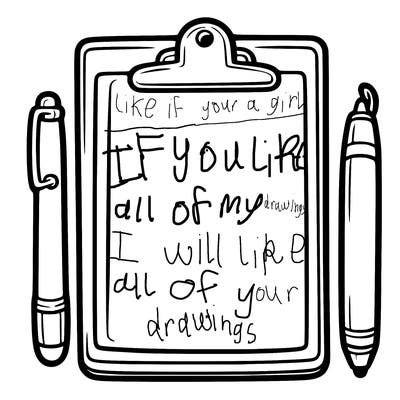 like if your a girl
IF you like
all of my drawings
I will like
all of your
drawings